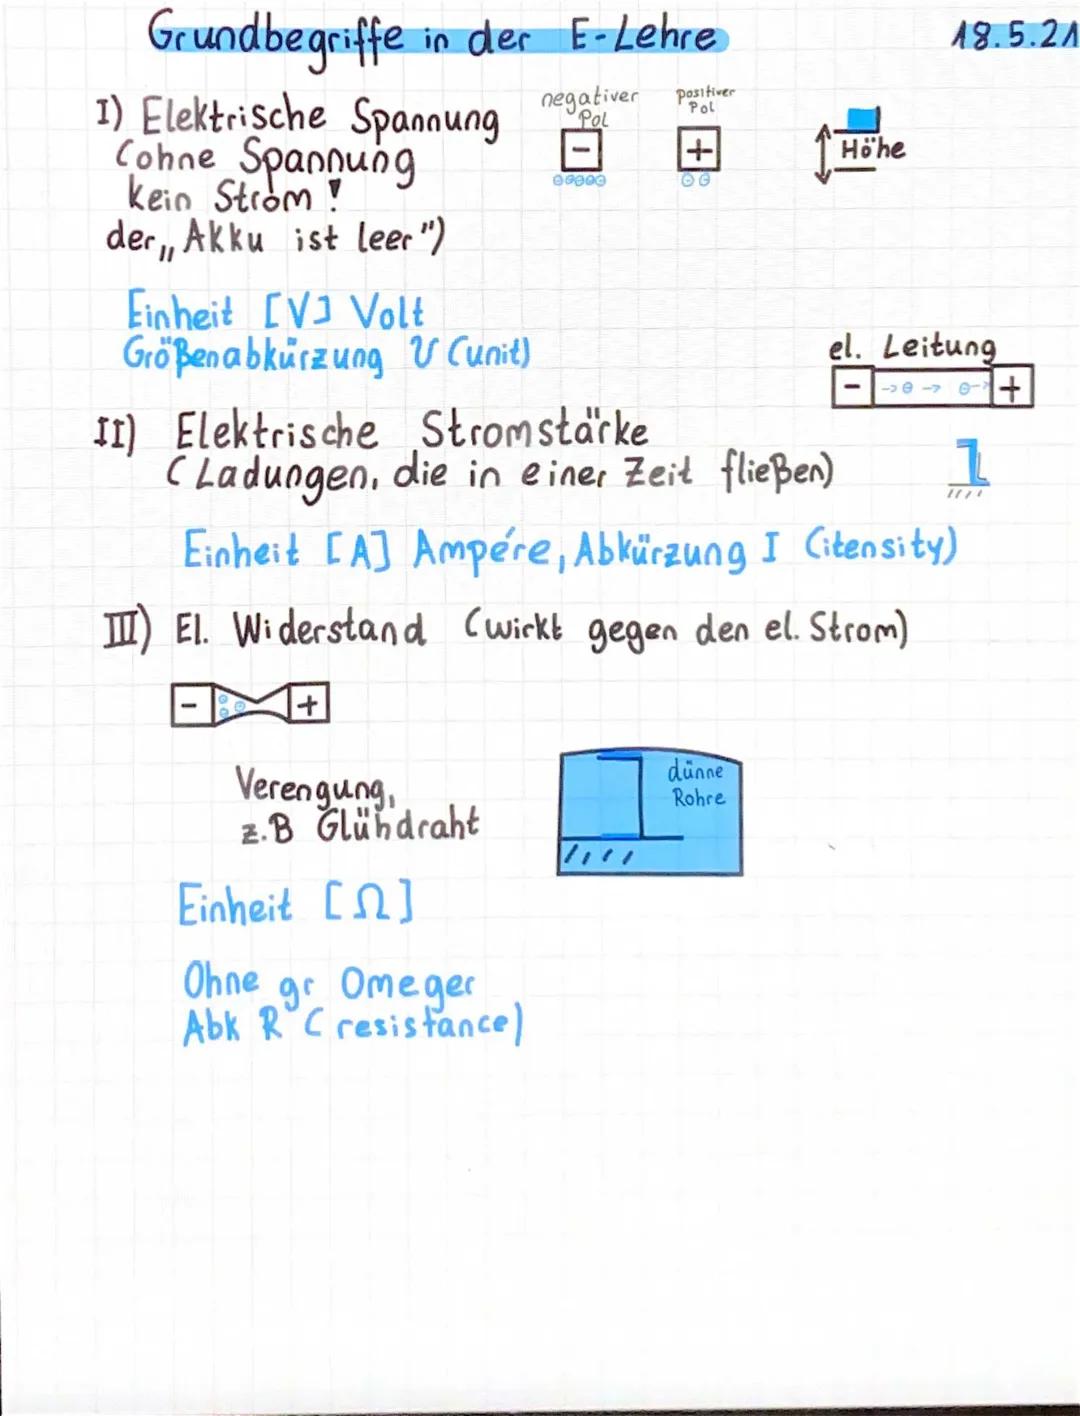 Grundbegriffe in der E-Lehre
18.5.21
I) Elektrische Spannung
(ohne Spannung
kein Strom!
der „Akku ist leer")
negativer
Pol
positiver
Pol
-
+
Höhe
Einheit [V] Volt
Größenabkürzung U (unit)
el. Leitung
- → ⊖ → ⊖→ +
II) Elektrische Stromstärke
(Ladungen, die in einer Zeit fließen)
Einheit [A] Ampére, Abkürzung I (itensity)
III) El. Widerstand (wirkt gegen den el. Strom)
- +
Verengung,
z.B Glühdraht
dünne
Rohre
Einheit [Ω]
Ohne gr Omeger
Abk R (resistance)